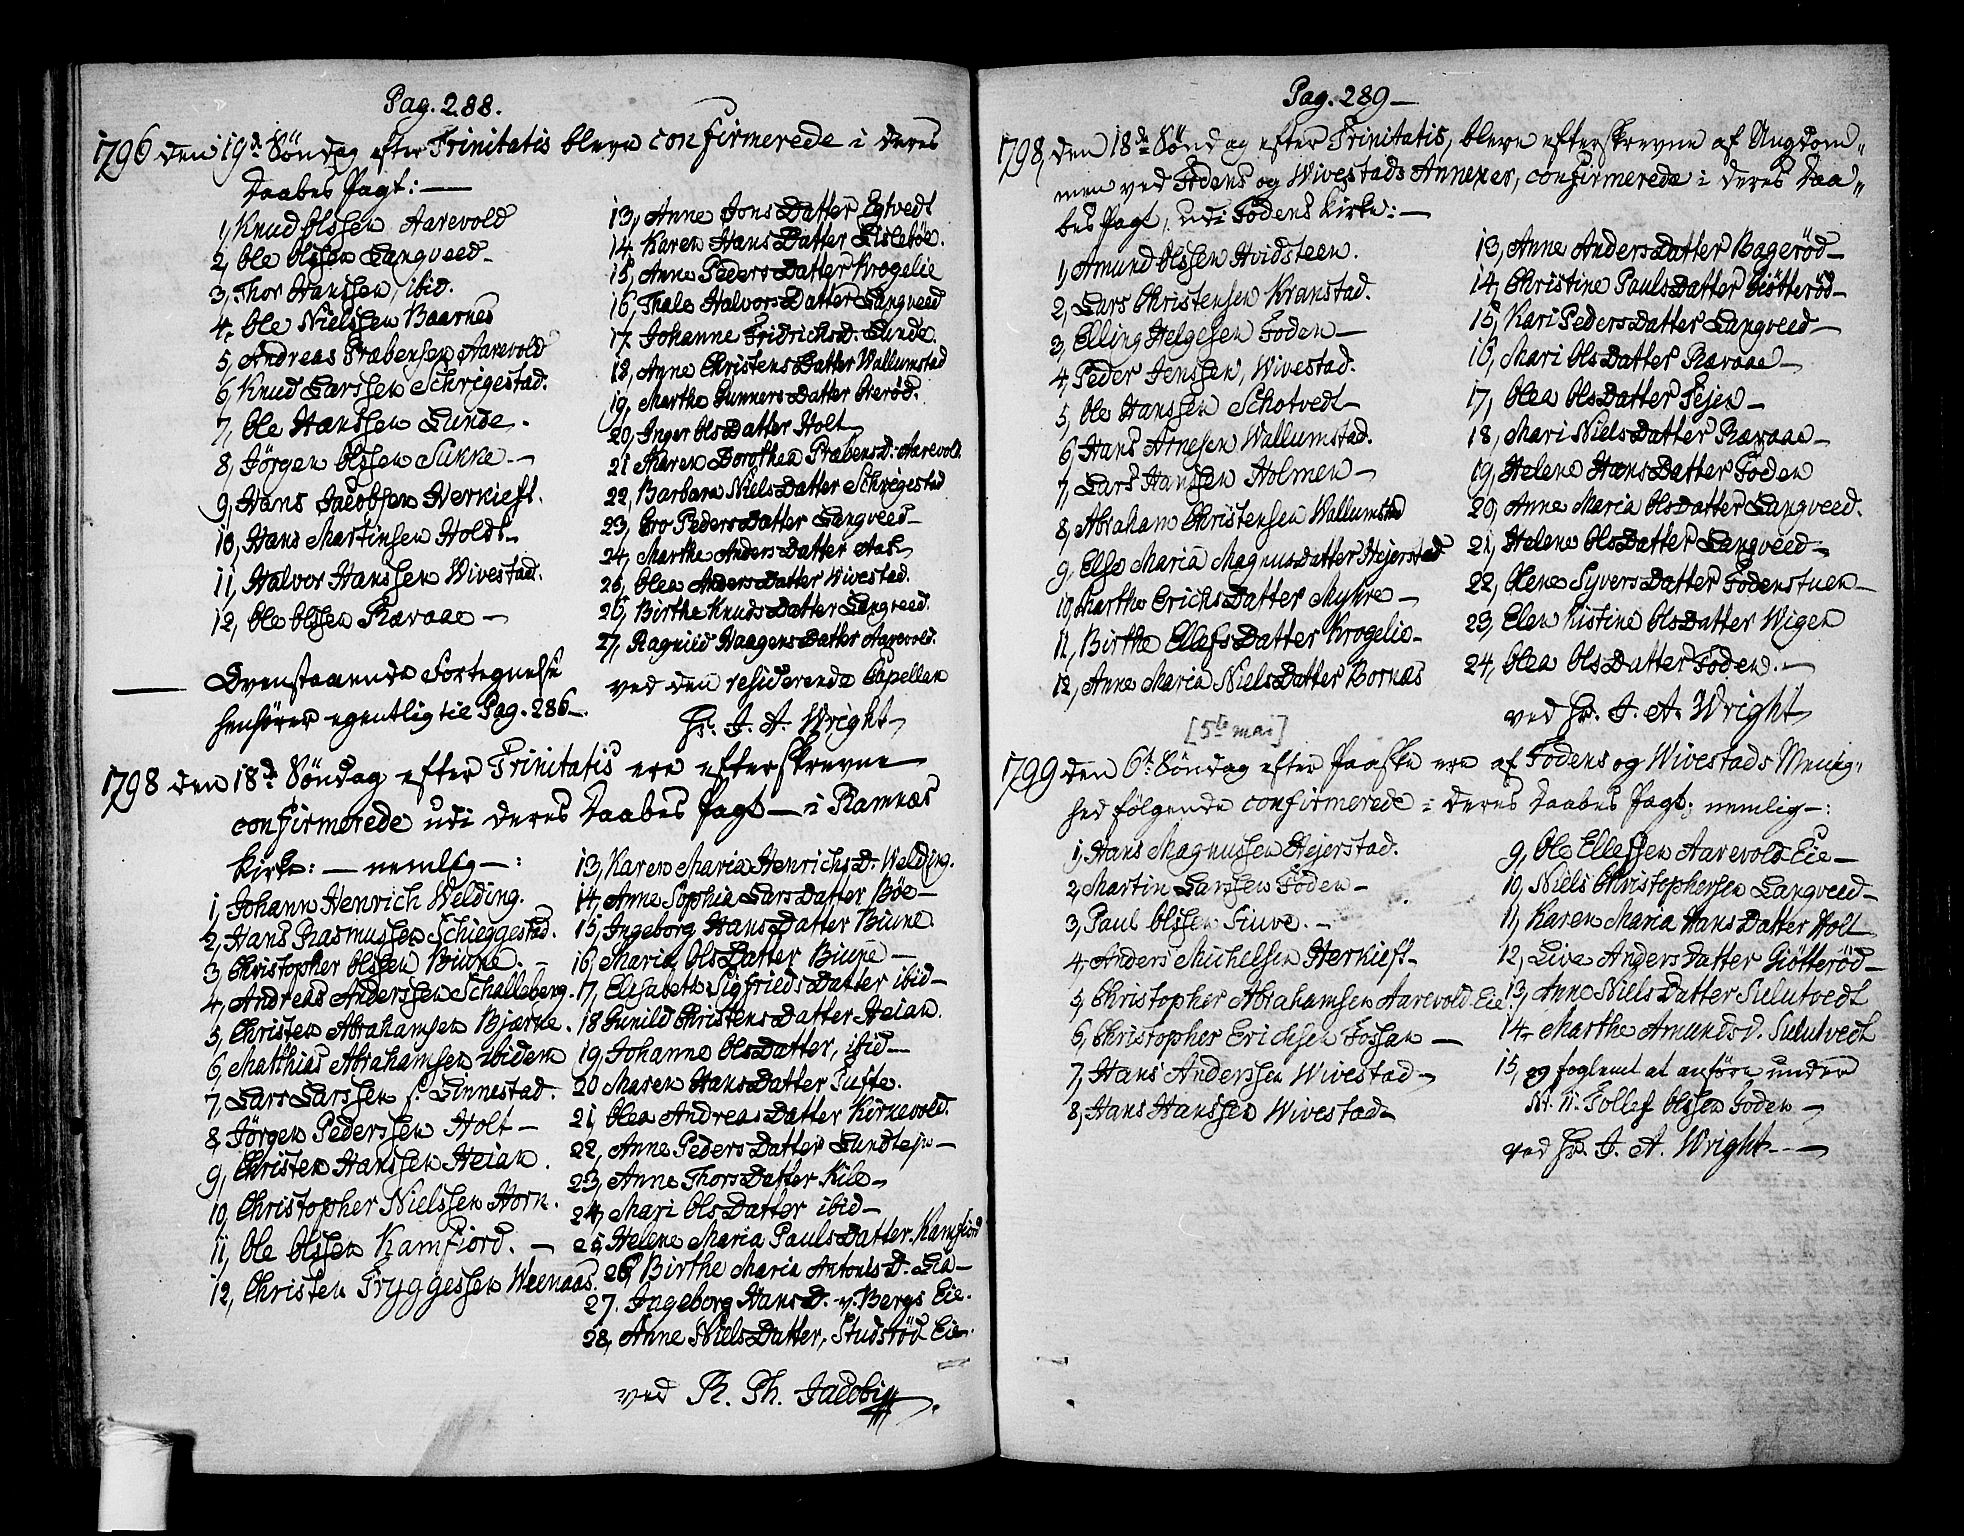 Pag. 288.
1796 den 19d. Söndag efter Trinitatis bleve confirmerede i deres
Daabes Pagt: —
1, Knud Olssen Aarevold
2, Ole Olssen Langveed
3, Thor Hanssen, ibid.
4, Ole Nielssen Baarnes
5, Andreas Præbensen Aarevold
6, Knud Larssen Schrigestad.
7, Ole Hanssen Lunde.
8, Jörgen Olssen Sukke. —
9, Hans Jacobsen Herkieft.
10, Hans Martinsen Holdt —
11, Halvor Hanssen Wivestad.
12, Ole Olssen Rævaae —
13, Anne Jons Datter Egtvedt
14, Karen Hans Datter Lisleböe.
15, Anne Peders Datter Krogelie
16, Thale Halvors Datter Langveed
17, Johanne Fridrichs D. Lunde.
18, Anne Christens Datter Wallumstad
19, Marthe Gunners Datter Ore röd.
20, Inger Ols Datter Holt
21 Maren Dorothea Præbens D: Aarevold.
22, Barbara Niels Datter Schrigestad
23, Gro Peders Datter Langveed —
24, Marthe Anders Datter Aas —
25, Olea Anders Datter Wivestad.
26, Birthe Knuds Datter Langveed.
27, Ragniid Haagens Datter Aarevold.
— Ovenstaaende Fortegnelse
henhörer egentlig til Pag. 286 —
ved den residerende Capellan
Hr. J. A. Wright —
1798 den 18de Söndag efter Trinitatis ere efterskrevne
confirmerede udi deres Daabes Pagt — i Ramnæs
Kirke: — nemlig —:
1, Johann Henrich Welding.
2, Hans Rasmussen Schieggestad.
3, Christopher Olssen Biune. —
4, Andreas Anderssen Schalleberg.
5, Christen Abrahamsen Bjærke.
6, Matthias Abrahamsen ibidem
7, Lars Larssen s. Linnestad.
8, Jörgen Pederssen Holt —
9, Christen Hanssen Heian.
10, Christopher Nielssen Horn.
11, Ole Olssen Kamfiord. —
12, Christen Tryggessen Weenaas.
13, Karen Maria Henrichs D. Welding.
14, Anne Sophia Lars Datter Böe —
15, Ingeborg Hans Datter Biune.
16, Maria Ols Datter Biune —
17, Elisabeth Sigfrieds Datter ibid —
18 Gunild Christens Datter Heian.
19, Johanne Ols Datter, ibid —
20 Maren Hans Datter Tufte.
21, Olea Andreas Datter Kirkevold.
22, Anne Peders Datter Lundtejn —
23, Anne Thors Datter Kile —
24, Mari Ols Datter ibid —
25, Helene Maria Pauls Datter Kamfiord
26, Birthe Maria Antonis D. Lia —
27. Ingeborg Hans D. v. Bergs Eie.
28, Anne Niels Datter, Studsröd Eie.
ved R. Th. Jacobi
Pag. 289 —
1798, den 18de Söndag efter Trinitatis, bleve efterskrevne af Ungdom„
men ved Fodens og Wivestads Annexer, confirmerede i deres Daa„
bes Pagt, udi Fodens Kirke: —
1, Amund Olssen Hvidsteen.
2, Lars Christensen Kranstad.
3, Elling Helgesen Foden —
4, Peder Jenssen, Wivestad.
5, Ole Hanssen Schotvedt
6, Hans Arnesen Wallumstad.
7, Lars Hanssen Holmen —
8, Abraham Christensen Wallumstad
9, Else Maria Magnus Datter Hejerstad
10, Marthe Erichs Datter Myhre —
11, Birthe Ellefs Datter Krogelie —
12, Anne Maria Niels Datter Bornæs
13, Anne Anders Datter Bageröd —
14, Christine Pauls Datter Giötteröd —
15, Kari Peders Datter Langveed —
16, Mari Ols Datter Rævaae —
17, Olea Ols Datter Fejen —
18, Mari Niels Datter Rævaae —
19, Helene Hans Datter Foden
20, Anne Maria Ols Datter Langveed.
21, Helene Ols Datter Langveed —
22, Olene Syvers Datter Fodenstuen —
23, Elen Kistine Ols Datter Wigen
24, Olea Ols Datter Foden. —
ved Hr. J. A. Wright
[5te mai]
1799 den 6t. Söndag efter Paaske ere af Fodens og Wivestads Menig„
hed fölgende confirmerede i deres Daabes Pagt; nemlig —:
1, Hans Magnussen Hejerstad.
2, Martin Larssen Foden —
3, Paul Olssen Fiuve. —
4, Anders Michelsen Herkieft —
5, Christopher Abrahamsen Aarevold Eie.
6, Christopher Erichsen Fossan —
7, Hans Anderssen Wivestad —
8, Hans Hanssen Wivestad —
9, Ole Ellefsen Aarevold Eie —
10, Niels Christophersen Langveed —
11, Karen Maria Hans Datter Holt
12, Live Anders Datter Giötteröd —
13, Anne Niels Datter Sulutvedt
14, Marthe Amunds d. Sulutvedt
15, og foglemt at anföre under
N. 11. Tollef Olssen Foden —
ved Hr. J. A. Wright —